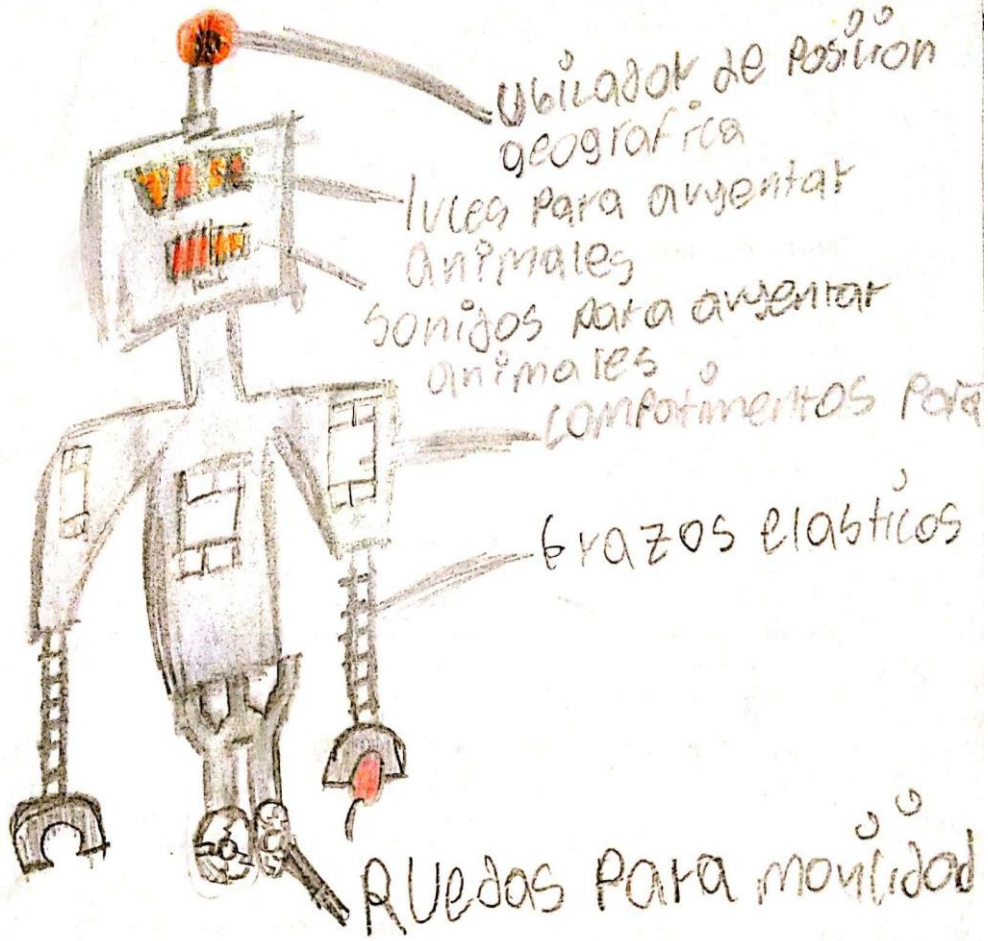 Ubicador de Posicion
geografica
luces para augentar
animales
sonidos para augentar
animales
compotimentos para
brazos elasticos
RUedas Para movilidad